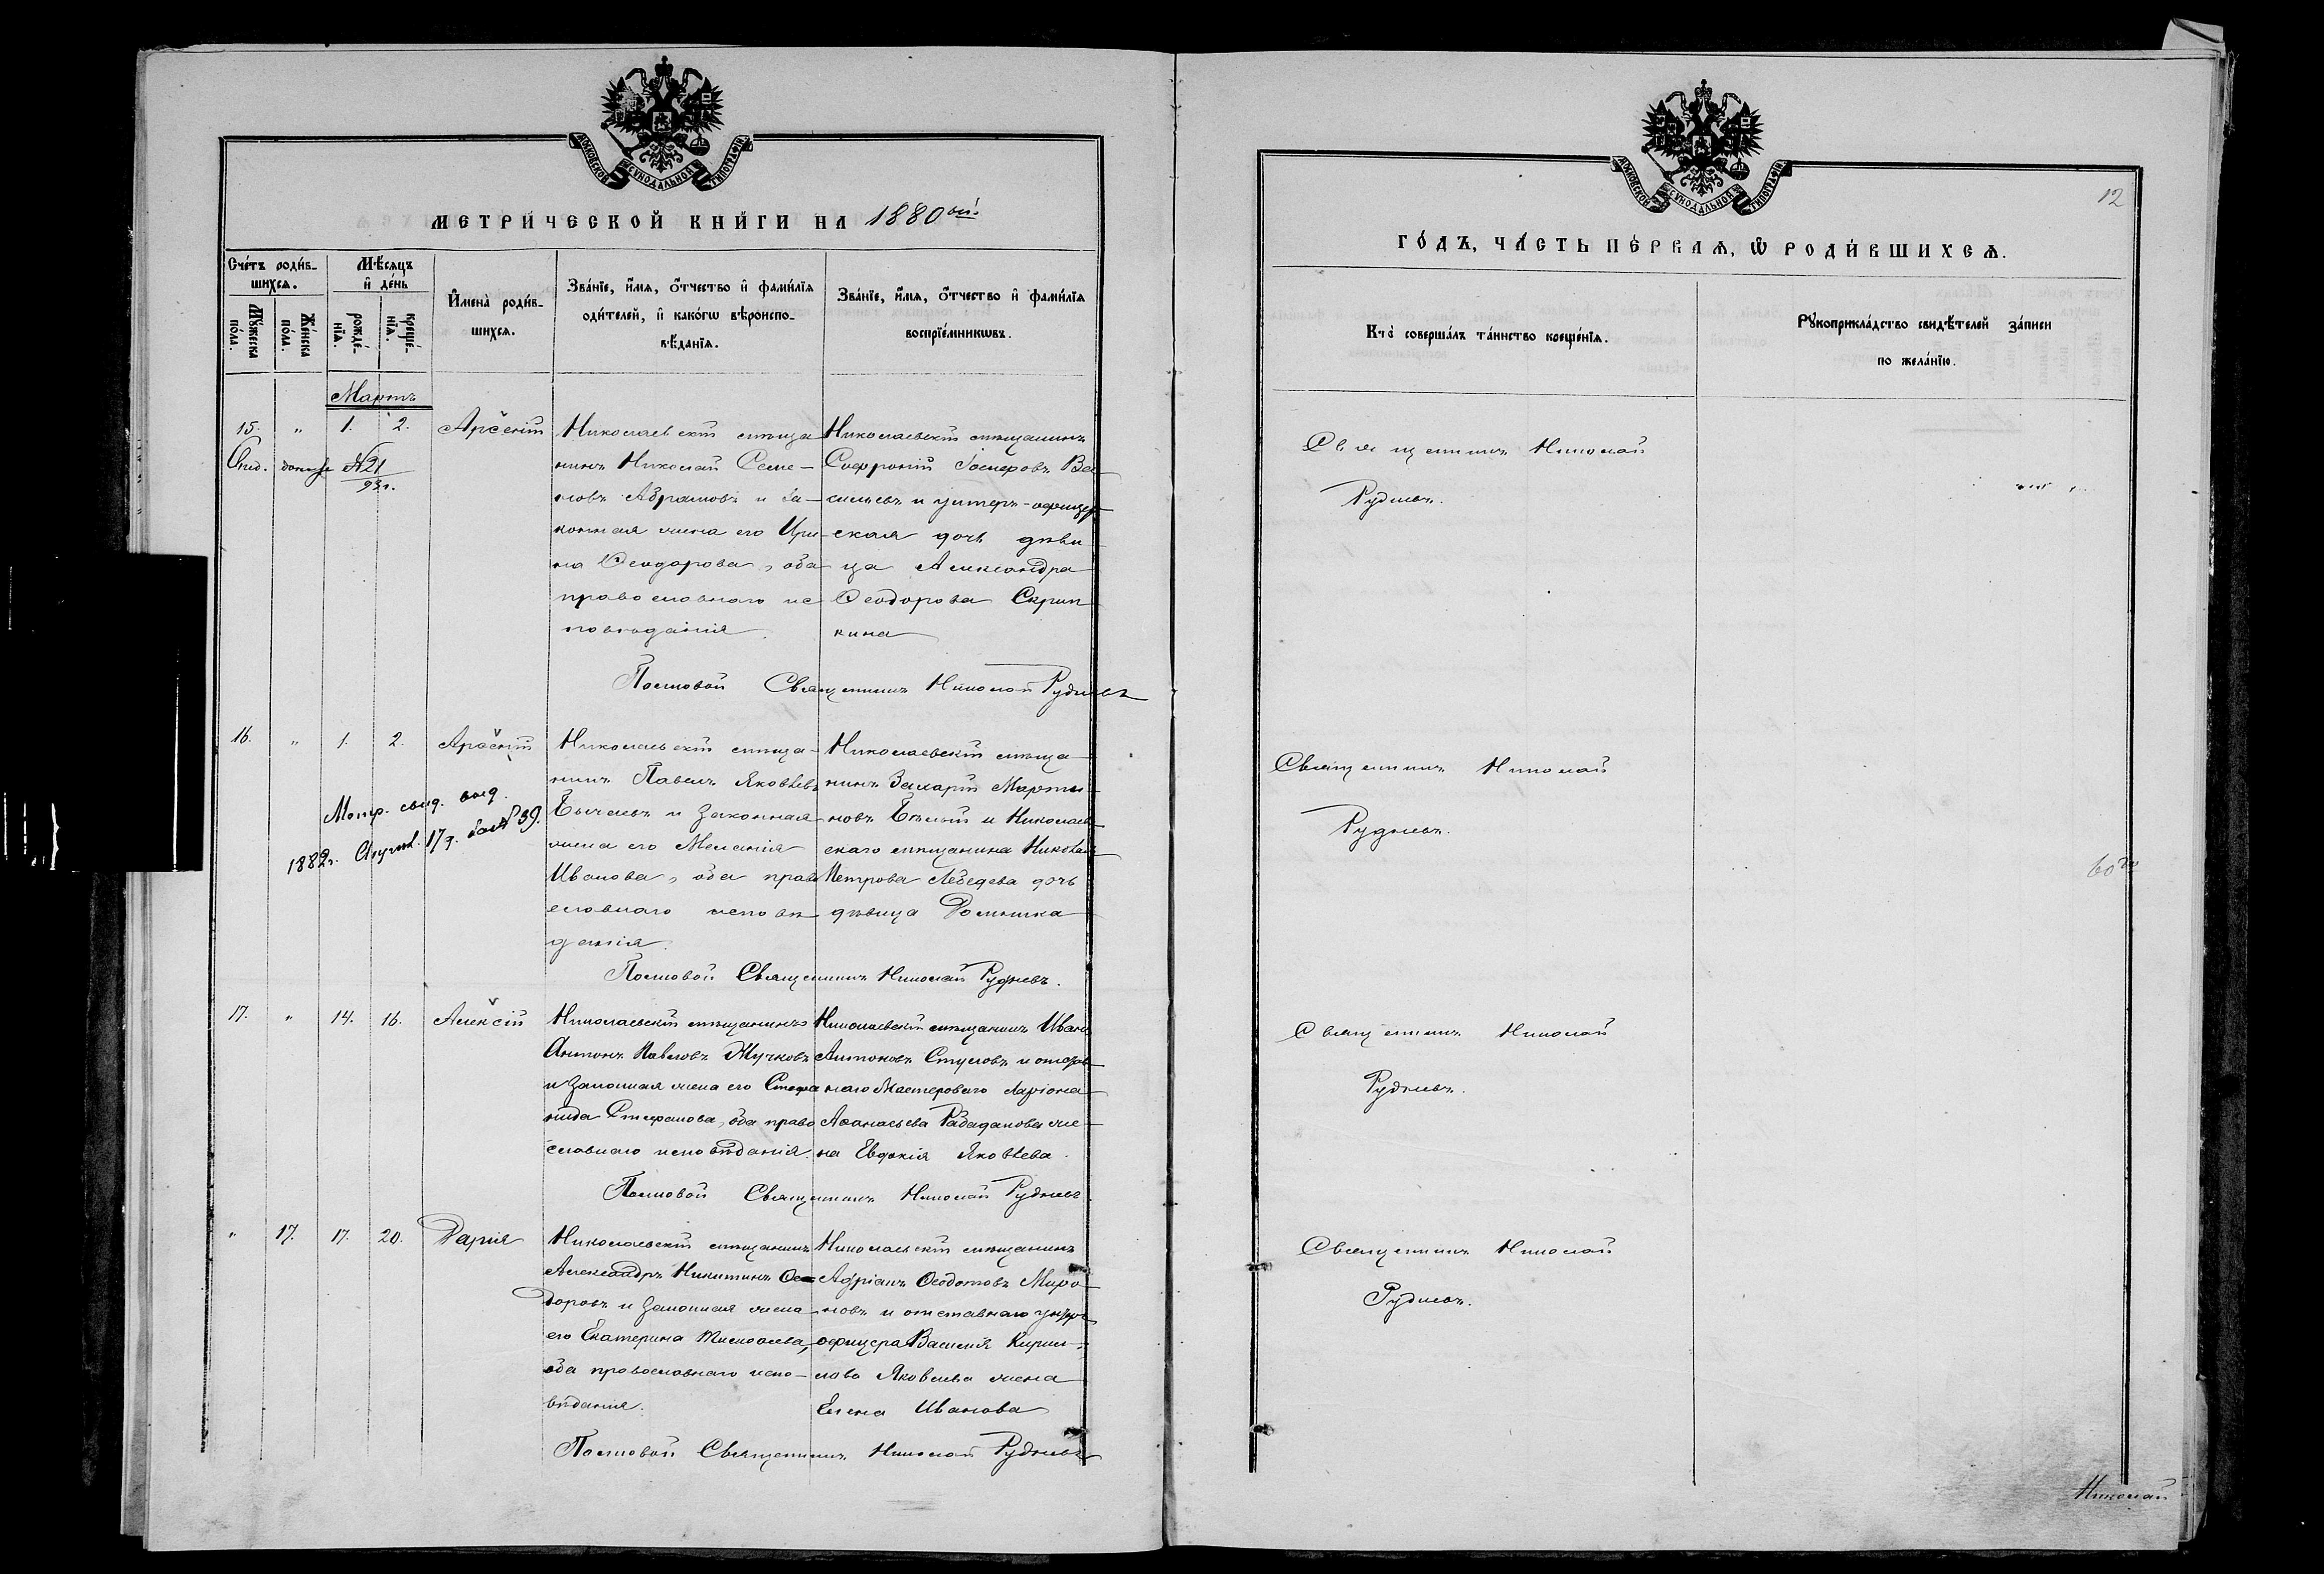 МОСКОВСКОЙ СѴНОДАЛЬНОЙ ТИПОГРАФІИ
МЕТРИЧЕСКОЙ КНИГИ НА 1880ый
Счетъ родив-
шихся.
Мужеска пола.
Женска пола.
Мѣсяцъ
и день
рожде-
нія.
креще-
нія.
Имена родив-
шихся.
Званіе, имя, отчество и фамилія
родителей, и какого вѣроиспо-
вѣданія.
Званіе, имя, отчество и фамилія
воспріемниковъ.
Мартъ
15. " 1. 2. Арсеній
№21
93г.
Николаевскій мѣща
нинъ Николай Семе-
новъ Абрамовъ и за-
конная жена его Ири
на Ѳеодорова, оба
православнаго ис
повѣданія.
Николаевскій мѣщанинъ
Софроній Іосифовъ Ва
сильевъ и унтеръ-офицер
ская дочь дѣви
ца Александра
Ѳеодорова Скрип
кина
Приходской Священникъ Николай Рудневъ
16. " 1. 2. Арсеній
Метр. свид. выд.
1882г. 17 д. за №39.
Николаевскій мѣща-
нинъ Павелъ Яковлевъ
Бычковъ и законная
жена его Меланія
Иванова, оба право
славнаго исповѣ
данія.
Николаевскій мѣща
нинъ Захарій Марты
новъ Бѣлый и Николаев
скаго мѣщанина Николая
Петрова Лебедева дочь
дѣвица Домника
Священникъ Николай Рудневъ.
17. " 14. 16. Алексій
Николаевскій мѣщанинъ
Антонъ Павловъ Жучковъ
и законная жена его Стефа
нида Стефанова, оба право
славнаго исповѣданія.
Николаевскій мѣщанинъ Иванъ
Антоновъ Стуловъ и отстав
наго Мастероваго Ларіона
Аѳанасьева Рабаданова же
на Евдокія Яковлева.
Священникъ Николай Рудневъ
" 17. 17. 20. Дарія
Николаевскій мѣщанинъ
Александръ Никитинъ Ѳео
доровъ и законная жена
его Екатерина
оба православнаго испо-
вѣданія.
Николаевскій мѣщанинъ
Адріанъ Ѳедотовъ Миро
новъ и отставнаго унтеръ
офицера Василія Кирил-
лова Яковлева жена
Елена Иванова
Священникъ Николай Рудневъ
МОСКОВСКОЙ СѴНОДАЛЬНОЙ ТИПОГРАФІИ
12
ГОДЪ, ЧАСТЬ ПЕРВАЯ, Ѡ РОДИВШИХСЯ.
Кто совершалъ таинство крещенія.
Рукоприкладство свидѣтелей записи
по желанію.
Священникъ Николай
Рудневъ.
Священникъ Николай
Рудневъ.
Священникъ Николай
Рудневъ.
Священникъ Николай
Рудневъ.
Николай